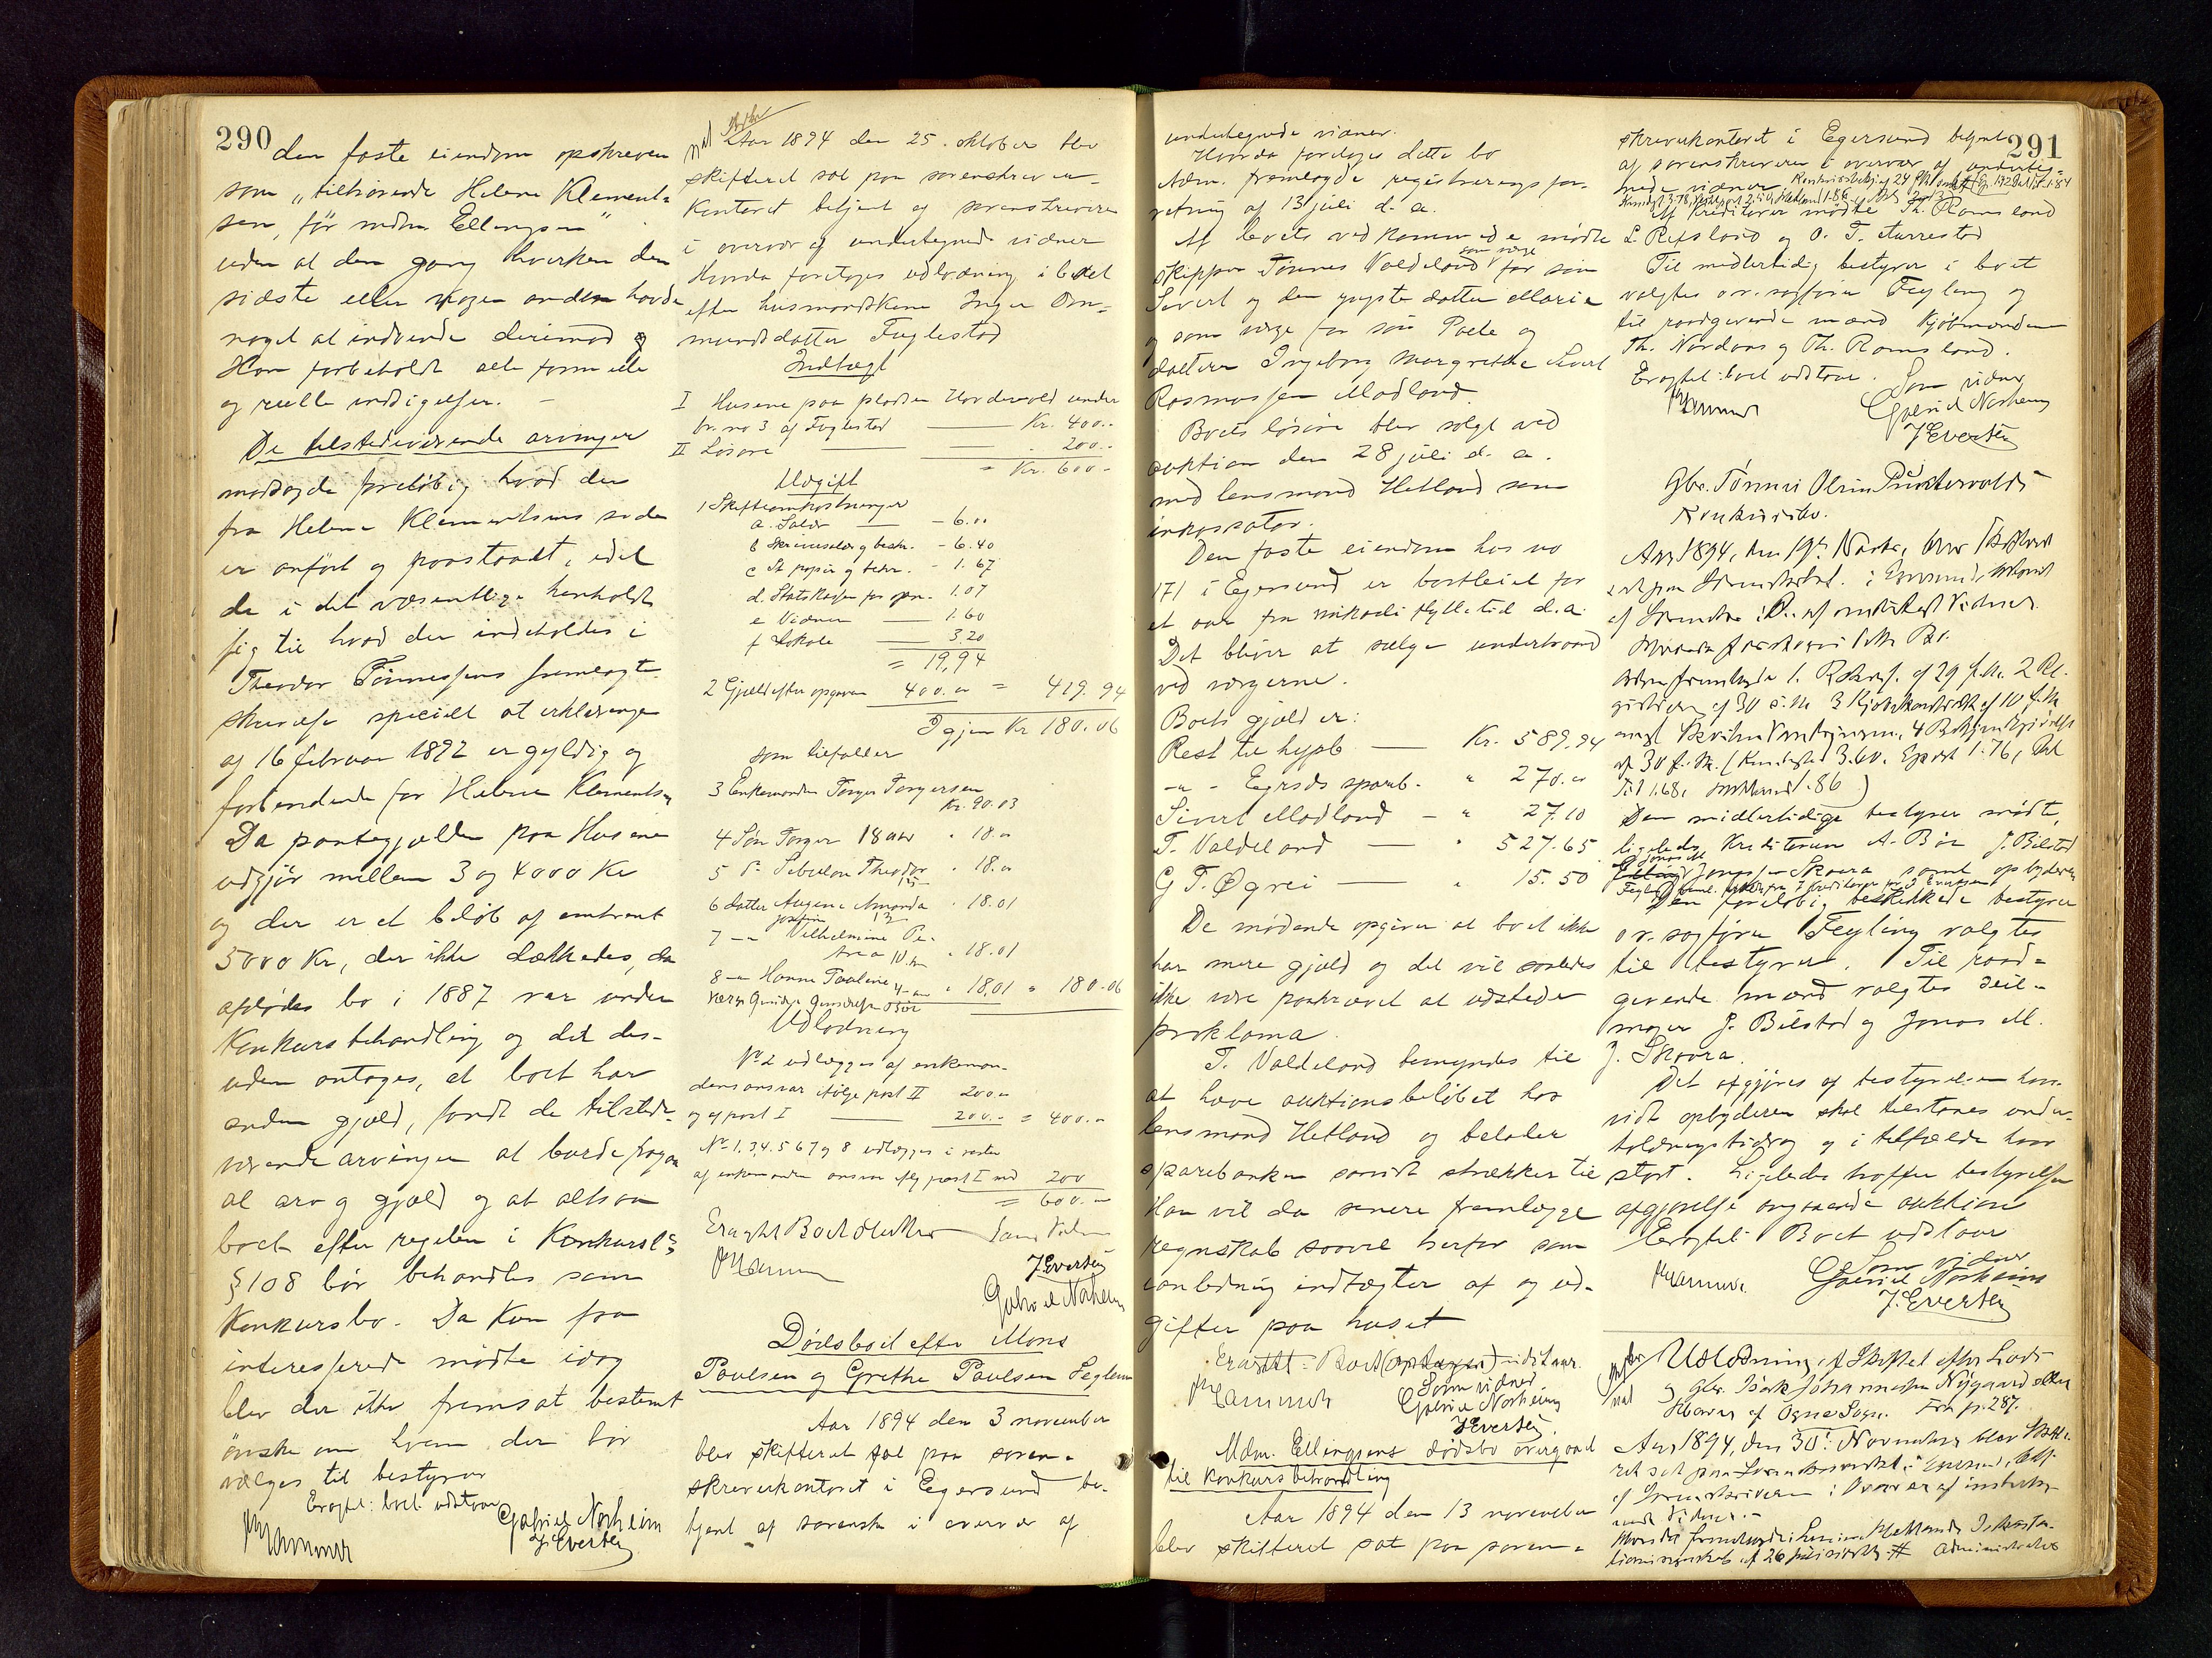 290
den faste eiendom opskreven
som „tilhørende Helene Klement-
sen, før mdm. Ellingsen"
uden at den gang hverken den
sidste eller nogen anden havde
noget at indvende derimod og
Han forbeholdt alle formelle
og reelle indsigelser. -
De tilstedeværende arvinger
modsagde foreløbig hvad der
fra Helene Klementsens side
er anført og paastaaet, idet
de i det væsentlige henholdt
sig til hvad der indeholdes i
Theodor Tønnesens fremlagte
skrivelse specielt at erklæringen
af 16 februar 1892 er gyldig og
forbindende for Helene Klementsen
Da pantegjælden paa Husene
udgjør mellem 3 og 4000 Kr
og der er et beløb af omtrent
5000 Kr, der ikke dækkedes, da
afdødes bo i 1887 var under
Konkursbehandling og det des-
uden antages, at boet har
anden gjæld, fandt de tilstede-
værende arvinger at burde fragaa
al arv og gjæld og at altsaa
boet efter regelen i Konkursl's
§ 108 bør behandles som
Konkursbo. Da kun faa
interesserede mødte idag
blev der ikke fremsat bestemt
ønske om hvem der bør
vælges til bestyrer
Eragtet: boet udstaar
Gabriel Norheim
J. Evertsen
Aar 1894 den 25. oktober blev
skifteret sat paa sorenskriver-
kontoret betjent af sorenskriveren
i overvær af undertegnede vidner
Hvorda foretoges udlodning i boet
efter husmandskone Inger Om-
mundsdatter Fuglestad
Indtægt
I Husene paa pladsen under
br. no 3 af Fuglestad — Kr. 400..
II Løsøre — 200..
= Kr. 600 -
Udgift
1 Skifteomkostninger
a. Salær — - 6.00
b Skriversalær og beskr. - 6.40
c St papir og - 1.67
d. Statskassen for - 1.07
e Vidner — 1.60
f Lokale — 3.20
= 19,94
2 Gjæld efter opgaven 400.00 = 419.94
Igjen Kr 180.06
som tilfalder
3 Enkemanden Torger Torgersen
Kr. 90.03
4 Søn Torger 18 aar " 18.00
5 D° Sebulon Theodor " 18.00
6 datter Augene Amanda " 18.01
Josefine 13
7 —" Vilhelmine Pe-
trea 10 " 18.01
8 —" Hanne Pauline " 18,01 = 180.06
Udlodning
No 2 udlægges af enkeman-
dens ansvar ifølge post II 200.00
og af post I — 200.- = 400.-
No 1, 3, 4. 5 6 7 og 8 udlægges i resten
af enkemandens ansvar eflg post I med 200
= 600.-
Eragtet Boet sluttet Som Vidner
J. Evertsen
Gabriel Norheim
Dødsboet efter Mons
Poulsen og Grethe Poulsen Seglem
Aar 1894 den 3 november
blev skifteret sat paa soren-
skriverkontoret i Egersund be-
tjent af sorenskr i overvær af
undertegnede vidner.
Hvorda foretoges dette bo
Adm. fremlagde registreringsfor-
retning af 13 juli d. a.
Af boets vedkommende mødte
skipper Tønnes Valdeland som værge for søn
Sivert og den yngste datter Marie
og som værge for søn Poele og
datteren Ingeborg Margrethe Sivert
Rasmussen Modland.
Boets løsøre blev solgt ved
auktion den 28 juli d. a.
med lensmand Hetland som
inkassator.
Den faste eiendom hus no
171 i Egersund er bortleiet for
et aar fra mikaeli flyttetid d.a.
Det bliver at sælge underhaand
ved værgerne.
Boets gjæld er:
Rest til hypb. — Kr. 589.94
-"- Egersds spareb. - " 270.00
Sivert Modland - " 27.10
T. Valdeland — " 527.65
G T. Øgrei — " 15.50
De mødende opgiver at boet ikke
har mere gjæld og det vil saaledes
ikke være paakrævet at udstede
proklama
T. Valdeland bemyndes til
at hæve auktionsbeløbet hos
lensmand Hetland og betaler
sparebanken saavidt strækker til
Han vil da senere fremlægge
regnskab saavel herfor som
i anledning indtægter af og ud-
gifter paa huset
Eragtet: Boet (optages) udstaar.
Som vidner
Gabriel Norheim
J Evertsen
Mdm. Ellingsens dødsbo overgaaet
til konkursbehandling
Aar 1894 den 13 november
blev skifteret sat paa soren-
291
skriverkontoret i Egersund betjent
af sorenskriveren i overvær af underteg-
nede vidner
Af Kreditorer mødte Th. Ramsland
L. Refsland og O. T. Aarrestad
Til midlertidig bestyrer i boet
valgtes o.r.sagfører Feyling og
til raadgivende mænd kjøbmændene
Th. Nordaas og Th. Ramsland.
Eragtet: boet udstaar.
Som vidner
Gabriel Norheim
J Evertsen
Gbr. Tønnes Olsen Puntervolds
Konkursbo.
Aar 1894, den 19de Novbr, blev Skifteret
sat paa i Egersund, betjent
af i Overvær af undertegnede Vidner.
Hvorda foretoges dette Bo.
af 29 f.M. 2 Re-
gistrering af 30 s.M. 3 af 10 f.M
af 30 f.M. (Kundgjort 3.60.
Den midlertidige bestyrer mødte,
ligeledes Kreditorene A. Bøe J. Bilstad
Jonassen Skaara samt opbyderen
Den foreløbig beskikkede bestyrer
o.r.sagfører Feyling valgtes
til bestyrer. Til raad-
givende mænd valgtes seil-
mager J. Bilstad og Jonas M.
J. Skaara.
Det afgjøres af bestyrelsen hvor-
vidt opbyderen skal tilstaaes under-
holdningsbidrag og i tilfælde hvor
stort. Ligeledes træffer bestyrelsen
afgjørelse angaaende auktion
Eragtet: Boet udstaar
Som vidner
Gabriel Norheim
J. Evertsen
Udlodning i Skiftet efter
og Gbr. Isak Johannesen Nygaard
af Ogne Sogn. Fra p. 287.
Aar 1894, den 30te November blev Skifte-
ret sat paa i Egersund, betj.
af Sorenskriveren i Overvær af underteg-
nede Vidner. -
Hvorda fremlagdes Hetlands Inkassa-
tionsregnskab af 26 Administrator